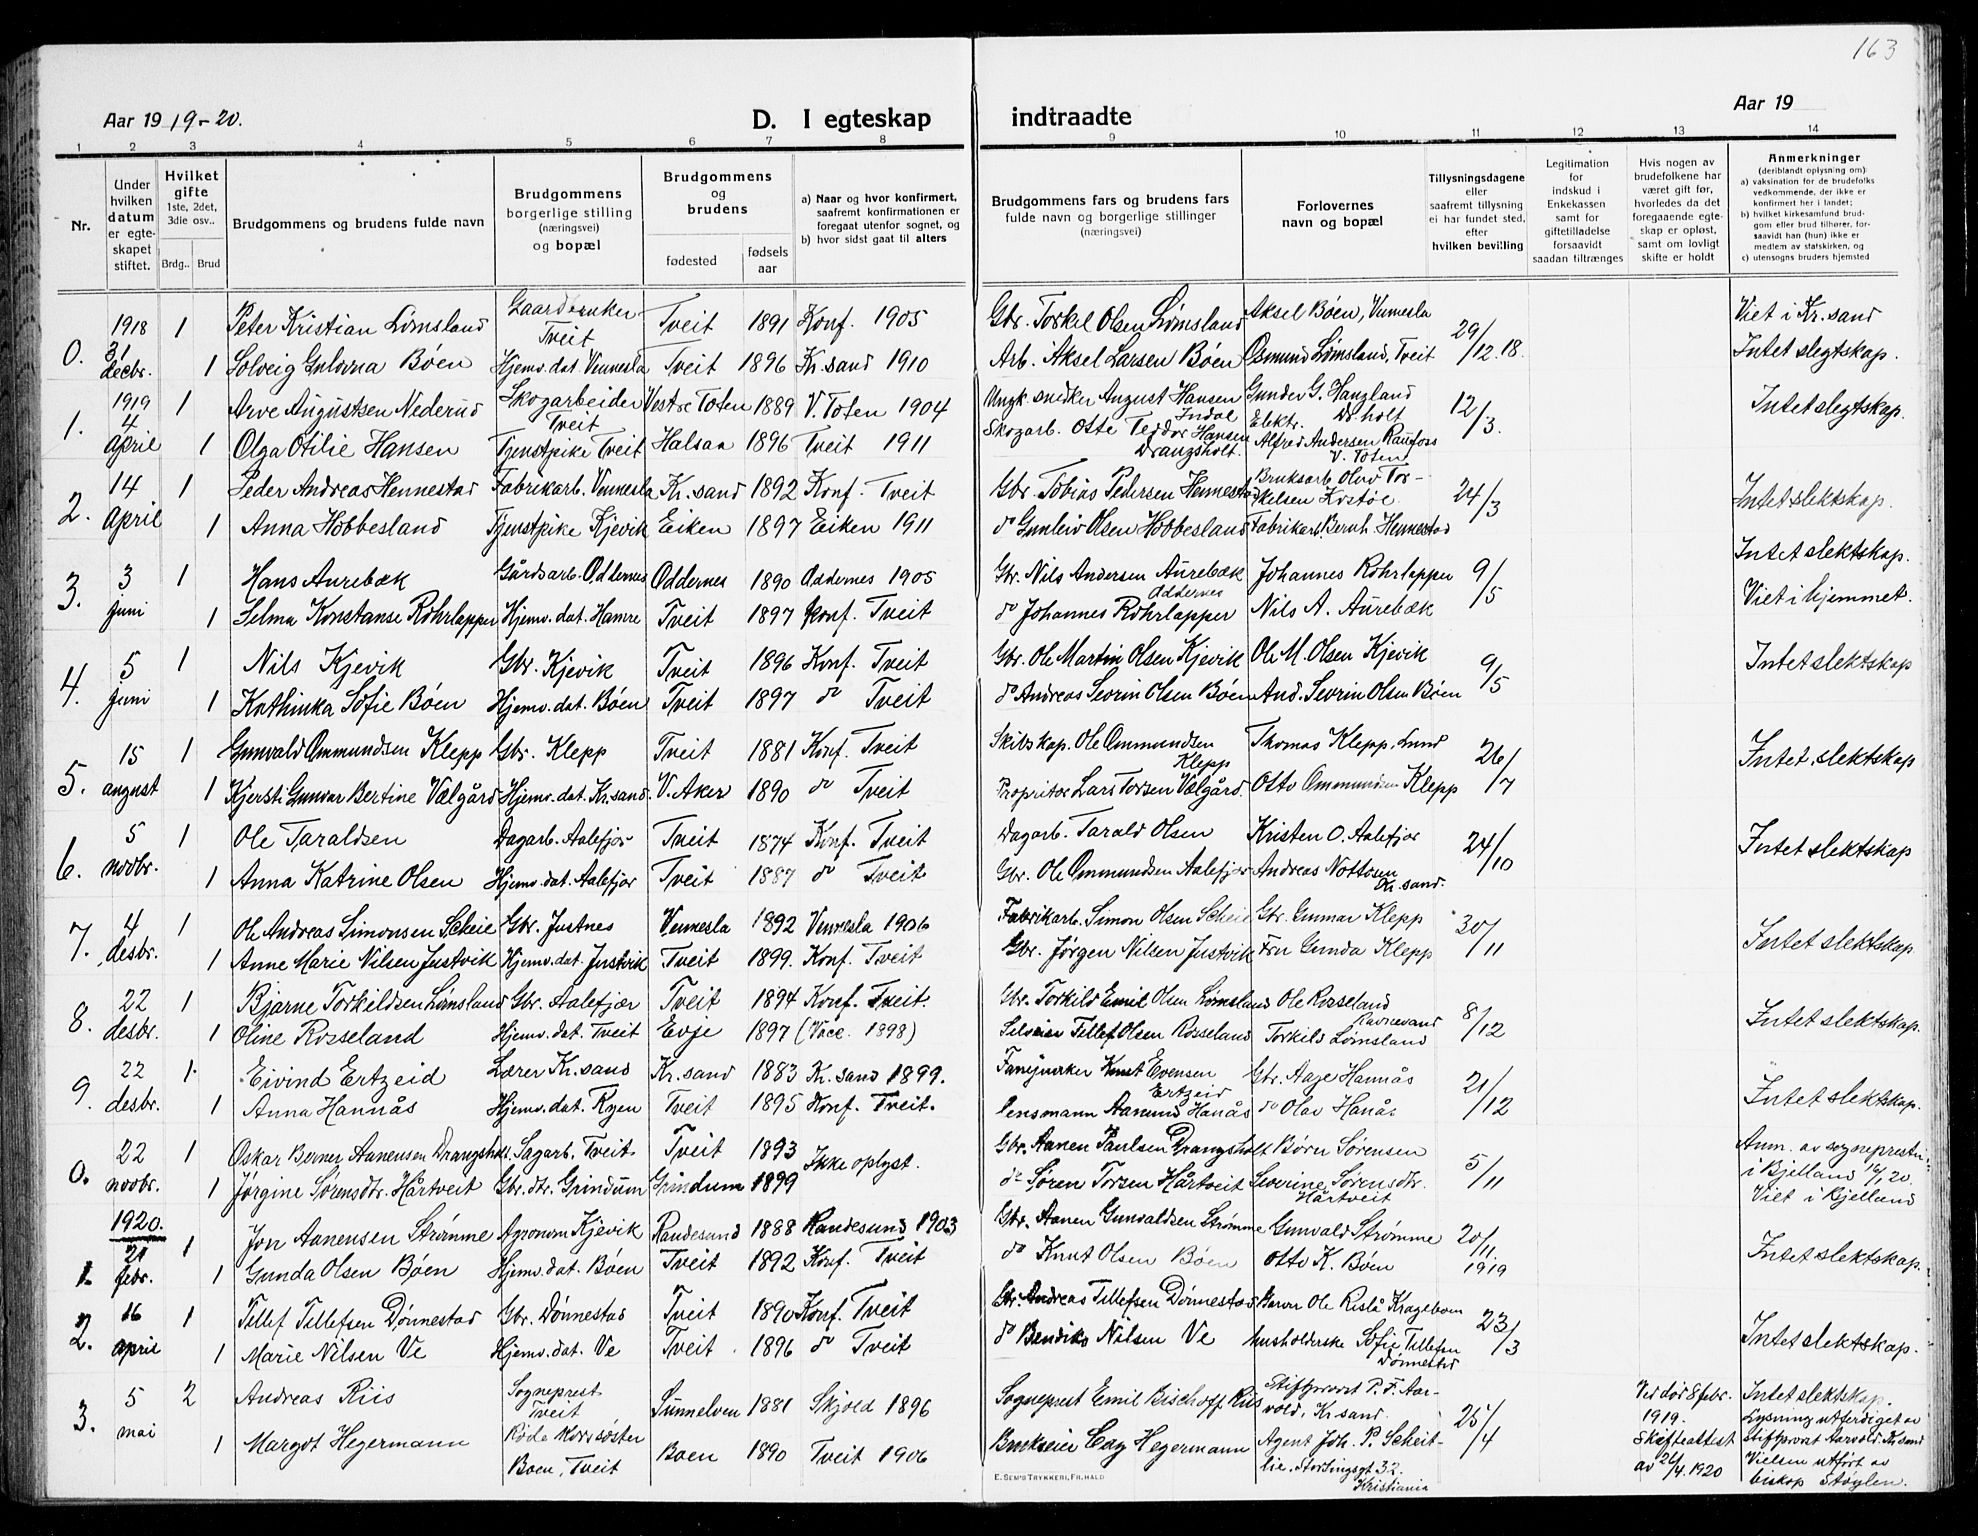 163
Aar 1919-20.
D. I egteskap indtraadte
Aar 19
1 2 3 4 5 6 7 8 9 10 11 12 13 14
Nr.
Under hvilken datum er egteskapet stiftet.
Hvilket gifte 1ste, 2det, 3die osv..
Brdg.. Brud
Brudgommens og brudens fulde navn
Brudgommens borgerlige stilling (næringsvei) og bopæl
Brudgommens og brudens
fødested
fødselsaar
a) Naar og hvor konfirmert, saafremt konfirmationen er foregaat utenfor sognet, og
b) hvor sidst gaat til alters
Brudgommens fars og brudens fars fulde navn og borgerlige stillinger (næringsvei)
Forlovernes navn og bopæl
Tillysningsdagene eller saafremt tillysning ei har fundet sted, efter hvilken bevilling
Legitimation for indskud i Enkekassen samt for giftetilladelse forsaavidt saadan tiltrænges
Hvis nogen av brudefolkene har været gift før, hvorledes da det foregaaende egteskap er opløst, samt om lovligt skifte er holdt
Anmerkninger (deriblandt oplysning om):
a) vaksination for de brudefolks vedkommende, der ikke er konfirmert her i landet;
b) hvilket kirkesamfund brudgom eller brud tilhører, forsaavidt han (hun) ikke er medlem av statskirken, og
c) utensogns bruders hjemsted
0. 1918 31 decbr. 1 Peter Kristian Lømsland Gaardbruker Tveit Tveit 1891 Konf. 1905 Gbr. Torkel Olsen Lømsland Aksel Bøen, Vennesla 29/12.18. Viet i Kr.sand
1 Solveig Gulovna Bøen Hjemv. dat. Vennesla Tveit 1896 Kr.sand 1910 Arb. Aksel Larsen Bøen Osmund Lømsland, Tveit Intet slegtskap.
1. 1919 4 april 1 Arve Augustsen Nederud Skogarbeider Tveit Vestre Toten 1889 V. Toten 1904 snidker August Hansen Indal Gunder G. Haugland D.holt 12/3. Intet slegtskap.
1 Olga Otilie Hansen Tjenstpike Tveit Halsaa 1896 Tveit 1911 Skogarb. Otte Teodor Hansen Drangsholt. Elektr. Alfred Andersen Raufoss V. Toten
2. 14 april 1 Peder Andreas Hennestad Fabrikarb. Vennesla Kr.sand 1892 Konf. Tveit Gbr. Tobias Pedersen Hennestad Bruksarb. Olav Torkelsen Kostøl 24/3 Intet slektskap.
1 Anna Hobbesland Tjenstpike Kjevik Eiken 1897 Eiken 1911 do Gunleiv Olsen Hobbesland Fabrikarb. Bernh. Hennestad
3. 3 juni 1 Hans Aurebæk Gårdsarb. Oddernes Oddernes 1890 Oddernes 1905 Gbr. Nils Andersen Aurebæk Oddernes Johannes Rohrlapper 9/5 Intet slektskap.
1 Selma Konstanse Rohrlapper Hjemv. dat. Hamre Tveit 1897 Konf. Tveit do Johannes Rohrlapper Nils A. Aurebæk Viet i hjemmet.
4. 5 juni 1 Nils Kjevik Gbr. Kjevik Tveit 1896 Konf. Tveit Gbr. Ole Martin Olsen Kjevik Ole M. Olsen Kjevik 9/5 Intet slektskap
1 Kathinka Sofie Bøen Hjemv. dat. Bøen Tveit 1897 do Tveit do Andreas Sevrin Olsen Bøen And. Sevrin Olsen Bøen
5. 15 august 1 Gunvald Ommundsen Klepp Gbr. Klepp Tveit 1881 Konf. Tveit Skibskap. Ole Ommundsen Klepp Thomas Klepp, Lund 26/7 Intet slektskap
1 Kjersti Gunvor Bertine Vælgård Hjemv. dat. Kr.sand. V. Aker 1890 do Tveit Proprietær Lars Torsen Vælgård. Otto Ommundsen Klepp
6. 5 novbr. 1 Ole Taraldsen Dagarb. Aalefjær Tveit 1874 Konf. Tveit Dagarb. Tarald Olsen Kristen O. Aalefjær 24/10 Intet slektskap
1 Anna Katrine Olsen Hjemv. dat. Aalefjær Tveit 1887 do Tveit Gbr. Ole Ommundsen Aalefjær Andreas Nottosen Kr.sand.
7. 4 desbr. 1 Ole Andreas Simonsen Scheie Gbr. Justnes Vennesla 1892 Vennesla 1906 Fabrikarb. Simon Olsen Scheie Gbr. Gunnar Klepp 30/11 Intet slektskap.
1 Anne Marie Nilsen Justvik Hjemv. dat. Justvik Tveit 1899. Konf. Tveit Gbr. Jørgen Nilsen Justvik Fru Gunda Klepp
8. 22 desbr. 1 Bjarne Torkildsen Lømsland Gbr. Aalefjær Tveit 1894 Konf. Tveit. Gbr. Torkild Emil Olsen Lømsland Ole Rosseland Ravnevand 8/12 Intet slektskap.
1 Oline Rosseland Hjemv. dat. Tveit Evje 1897 (Vacc. 1898) Selveier Tellef Olsen Rosseland Torkild Lømsland
9. 22 desbr. 1 Eivind Ertzeid Lærer Kr.sand Kr.sand 1883 Kr.sand 1899. Knut Evensen Ertzeid Gbr. Aage Hannås 21/12 Intet slektskap.
1 Anna Hannås Hjemv. dat. Ryen Tveit 1895 Konf. Tveit. lensmann Aanund Hanås do Olav Hanås
0. 22 novbr. 1 Oskar Berner Aanensen Drangsholt. Sagarb. Tveit Tveit 1893 Ikke oplyst. Gbr. Aanen Paulsen Drangsholt Børn Sørensen 5/11 Anm. av sognepresten i Bjelland 14/1 20.
1 Jørgine Sørensdtr. Hårtveit Gbr. dtr. Grindum Grindum 1899 do Søren Torsen Hårtveit Severine Sørensdtr. Hårtveit Viet i Bjelland
1. 1920. 21 febr. 1 Jon Aanensen Strømme Agronom Kjevik Randesund 1888 Randesund 1903 Gbr. Aanen Gunvaldsen Strømme Gunvald Strømme 20/11. 1919 Intet slektskap.
1 Gunda Olsen Bøen Hjemv. dat. Bøen Tveit 1892 Konf. Tveit do Knut Olsen Bøen Otto K. Bøen
2. 16 april 1 Tellef Tellefsen Dønnestad Gbr. Dønnestad Tveit 1890 Konf. Tveit Gbr. Andreas Tellefsen Dønnestad Ole Rislå Kragebom 23/3 Intet slektskap.
1 Marie Nilsen Ve Hjemv. dat. Ve Tveit 1896 do Tveit do Bendiks Nilsen Ve husholderske Sofie Tellefsen Dønnestad
3. 5 mai 2 Andreas Riis Sogneprest Tveit Sunnelven 1881 Skjold 1896 Sogneprest Emil Bischoff Riis Stiftsprovst P. F. Aarvold, Kr.sand. 25/4 Ved død 8 febr. 1919. Skifteattest av 26/4.1920 Intet slektskap. Lysning utferdiget av Stiftsprovst Aarvold. Kr.sand Vielsen utført av biskop Støylen.
1 Margot Hegermann Røde Korssøster Boen, Tveit Boen 1890 Tveit 1906 Brukseier Cay Hegermann Agent Joh. P. Scheitlie. Stortingsgt 32. Kristiania
E. SEM'S TRYKKERI, FR.HALD